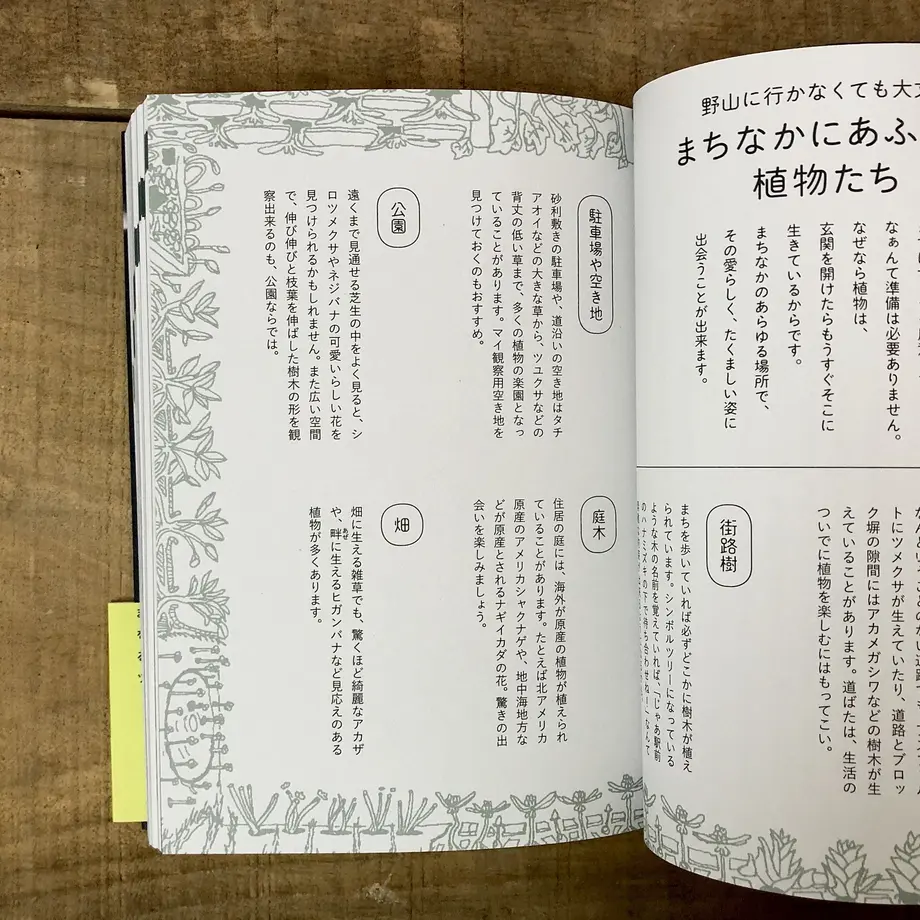 野山に行かなくても大
まちなかにあふ
植物たち
なぁんて準備は必要ありません。
なぜなら植物は、
玄関を開けたらもうすぐそこに
生きているからです。
まちなかのあらゆる場所で、
その愛らしく、たくましい姿に
出会うことが出来ます。
トにツメクサが生えていたり、道路とブロッ
ク塀の隙間にはアカメガシワなどの樹木が生
えていることがあります。道ばたは、生活の
ついでに植物を楽しむにはもってこい。
街路樹
まちを歩いていれば必ずどこかに樹木が植え
られています。シンボルツリーになっている
ような木の名前を覚えていれば、「じゃあ駅前
のハナミズキの下で待ち合わせね!」なんて
駐車場や空き地
砂利敷きの駐車場や、道沿いの空き地はタチ
アオイなどの大きな草から、ツユクサなどの
背丈の低い草まで、多くの植物の楽園となっ
ていることがあります。マイ観察用空き地を
見つけておくのもおすすめ。
公園
遠くまで見通せる芝生の中をよく見ると、シ
ロツメクサやネジバナの可愛いらしい花を
見つけられるかもしれません。また広い空間
で、伸び伸びと枝葉を伸ばした樹木の形を観
察出来るのも、公園ならでは。
庭木
住居の庭には、海外が原産の植物が植えられ
ていることがあります。たとえば北アメリカ
原産のアメリカシャクナゲや、地中海地方な
どが原産とされるナギイカダの花。驚きの出
会いを楽しみましょう。
畑
畑に生える雑草でも、驚くほど綺麗なアカザ
や、畔に生えるヒガンバナなど見応えのある
あぜ
植物が多くあります。